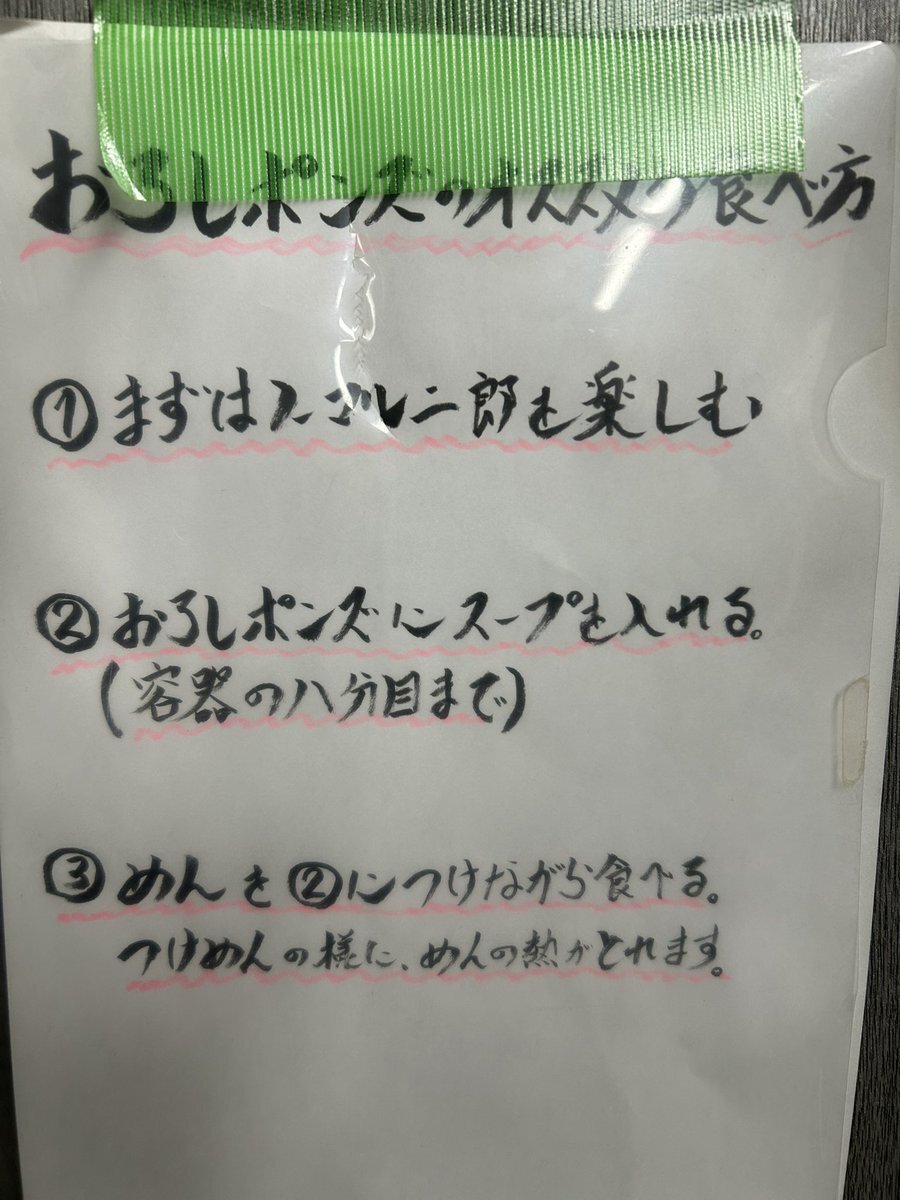 おろしポンズのオススメの食べ方
①まずはスマル二郎を楽しむ
②おろしポンズにスープを入れる。
(容器の八分目まで)
③めんを②につけながら食べる。
つけめんの様に、めんの熱がとれます。